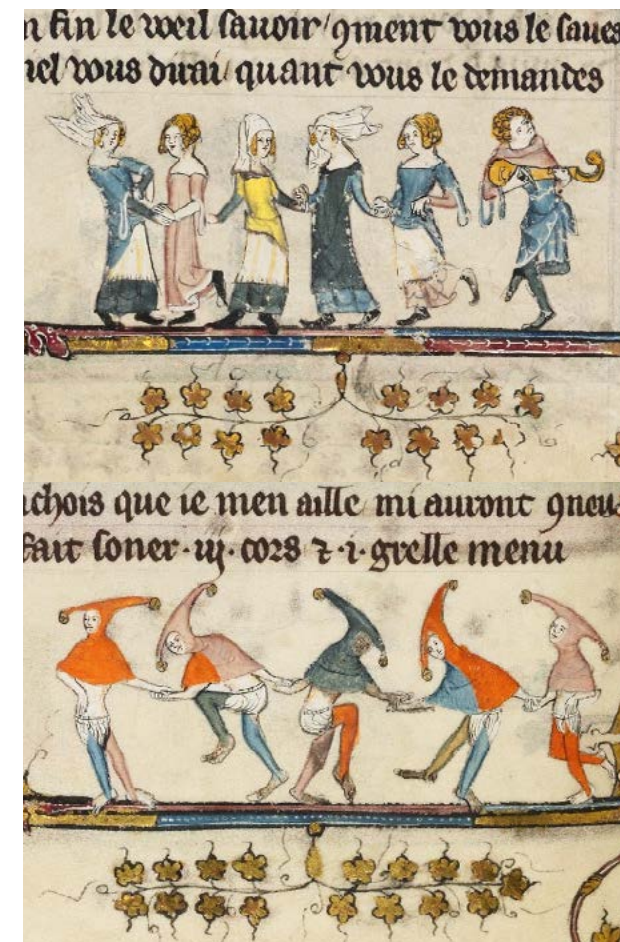 n fin le weil sauoir / ꝯment vous le saues
iel vous dirai / quant vous le demandes
chois que ie men aille / mi auront ꝯneu
fait soner · iij · cors ⁊ · i · grelle menu